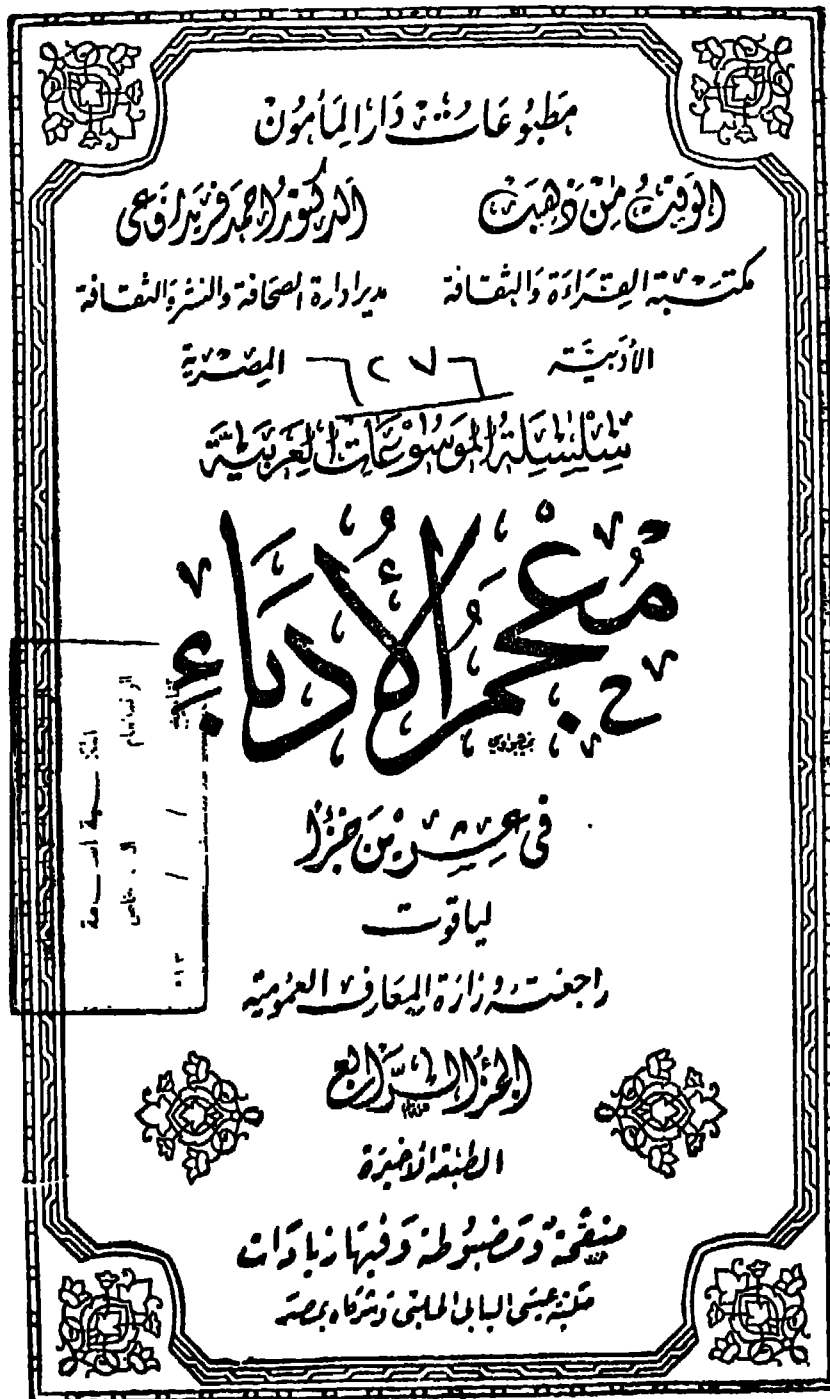 مَطبُوعَات دَار المَأمُون
الوَقتُ مِن ذَهَب
الدكتور أحمد فريد رفاعى
مكتبة القراءة والثقافة
مدير ادارة الصحافة والنشر والثقافة
الأدبيّة
المصرية
٦٢٧٦
سِلْسِلَةُ المَوسُوعَات العَرَبيَّة
مُعْجَمُ الأُدَبَاءِ
فى عِشرِينَ جُزْءًا
لياقوت
راجعته وزارة المعارف العمومية
الجُزْءُ الرَّابعُ
الطبعة الأخيرة
منقحة ومضبوطة وفيها زيادات
مكتبة عيسى البابى الحلبى وشركاه بمصر